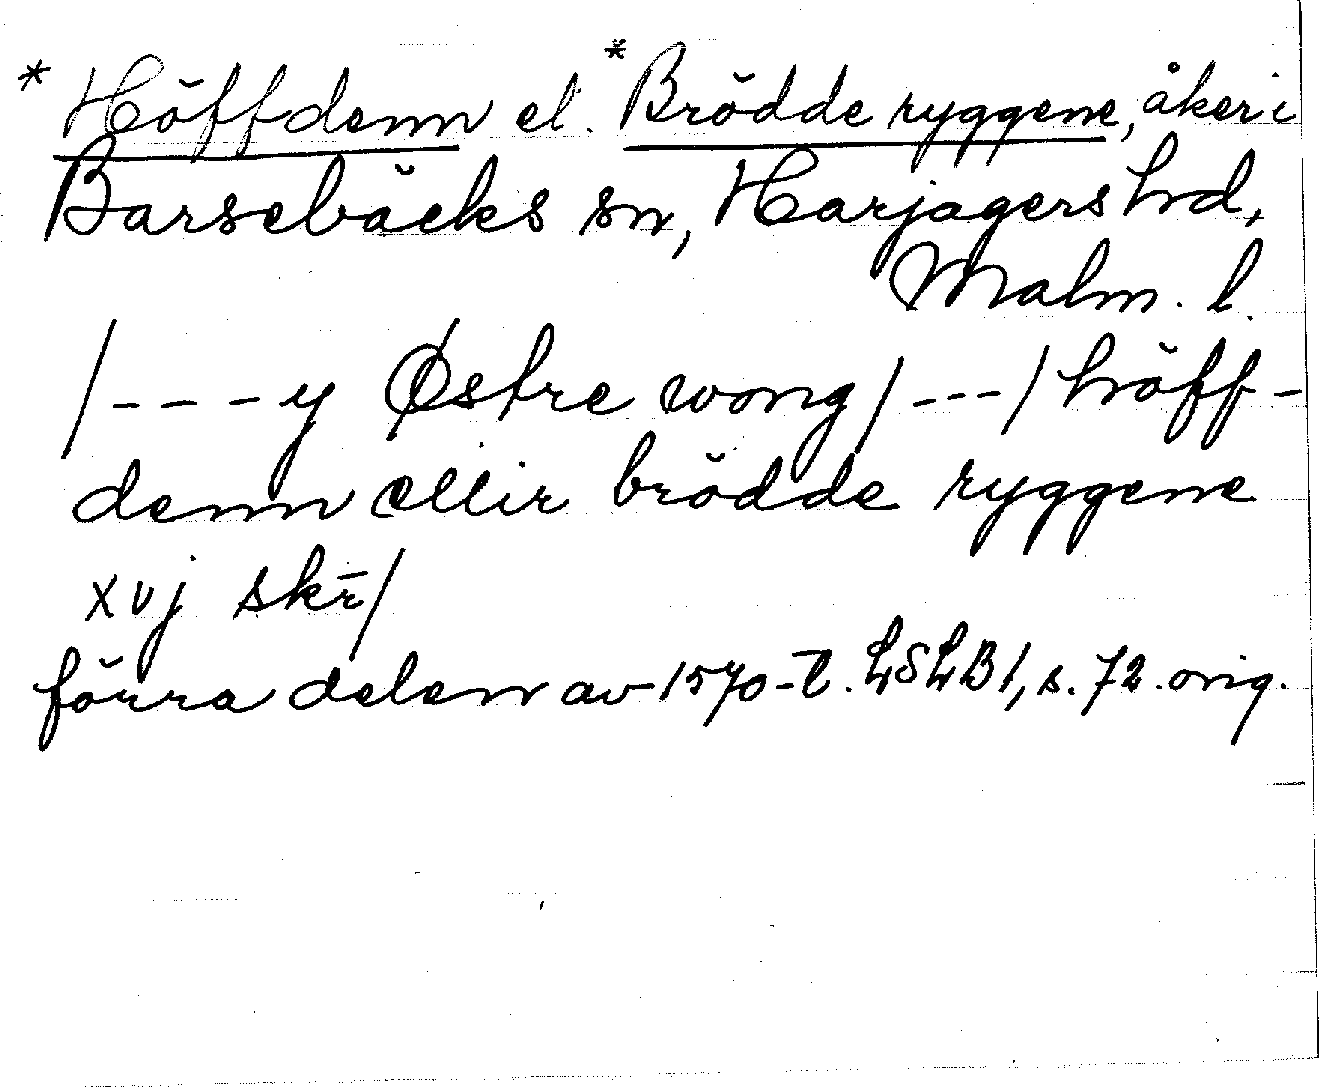 * Höffdenn el. * Brödde ryggene, åker i
Barsebäcks sn, Harjagers hd,
Malm. l.
/---y Østre wong/---/höff-
denn ellir brödde ryggene
xvj skr̄/
förra delen av 1570-t. LSLB1, s. 72. orig.